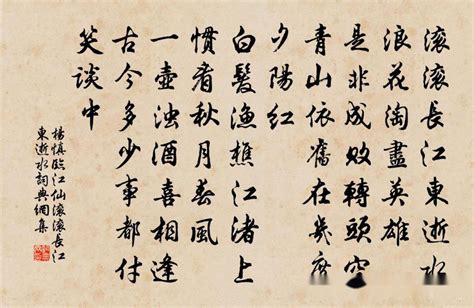 滚滚長江東逝水
浪花淘盡英雄
是非成敗轉頭空
青山依舊在幾度
夕陽红
白髮漁樵江渚上
慣看秋月春風
一壺浊酒喜相逢
古今多少事都付
笑談中
楊慎臨江仙滚滚長江
東逝水詞典網集